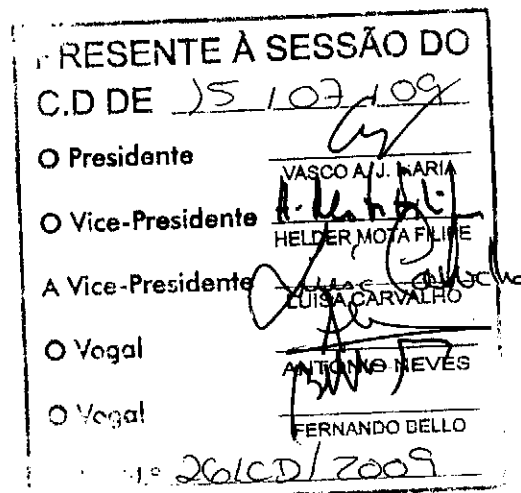 PRESENTE À SESSÃO DO
C.D DE 15 / 07 / 09
O Presidente
VASCO A. J. MARIA
O Vice-Presidente
HELDER MOTA FILIPE
A Vice-Presidente
LUISA CARVALHO
O Vogal
ANTONIO NEVES
O Vogal
FERNANDO BELLO
26/CD/2009